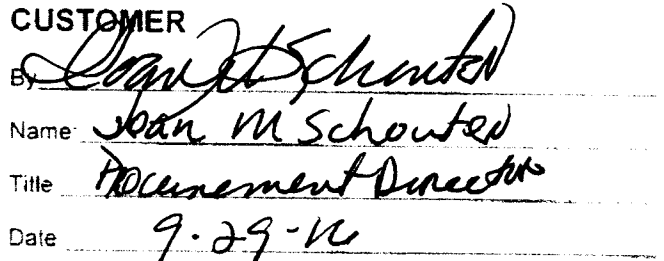 CUSTOMER
By Joan M Schouten
Name Joan M Schouten
Title Procurement Director
Date 9-29-16